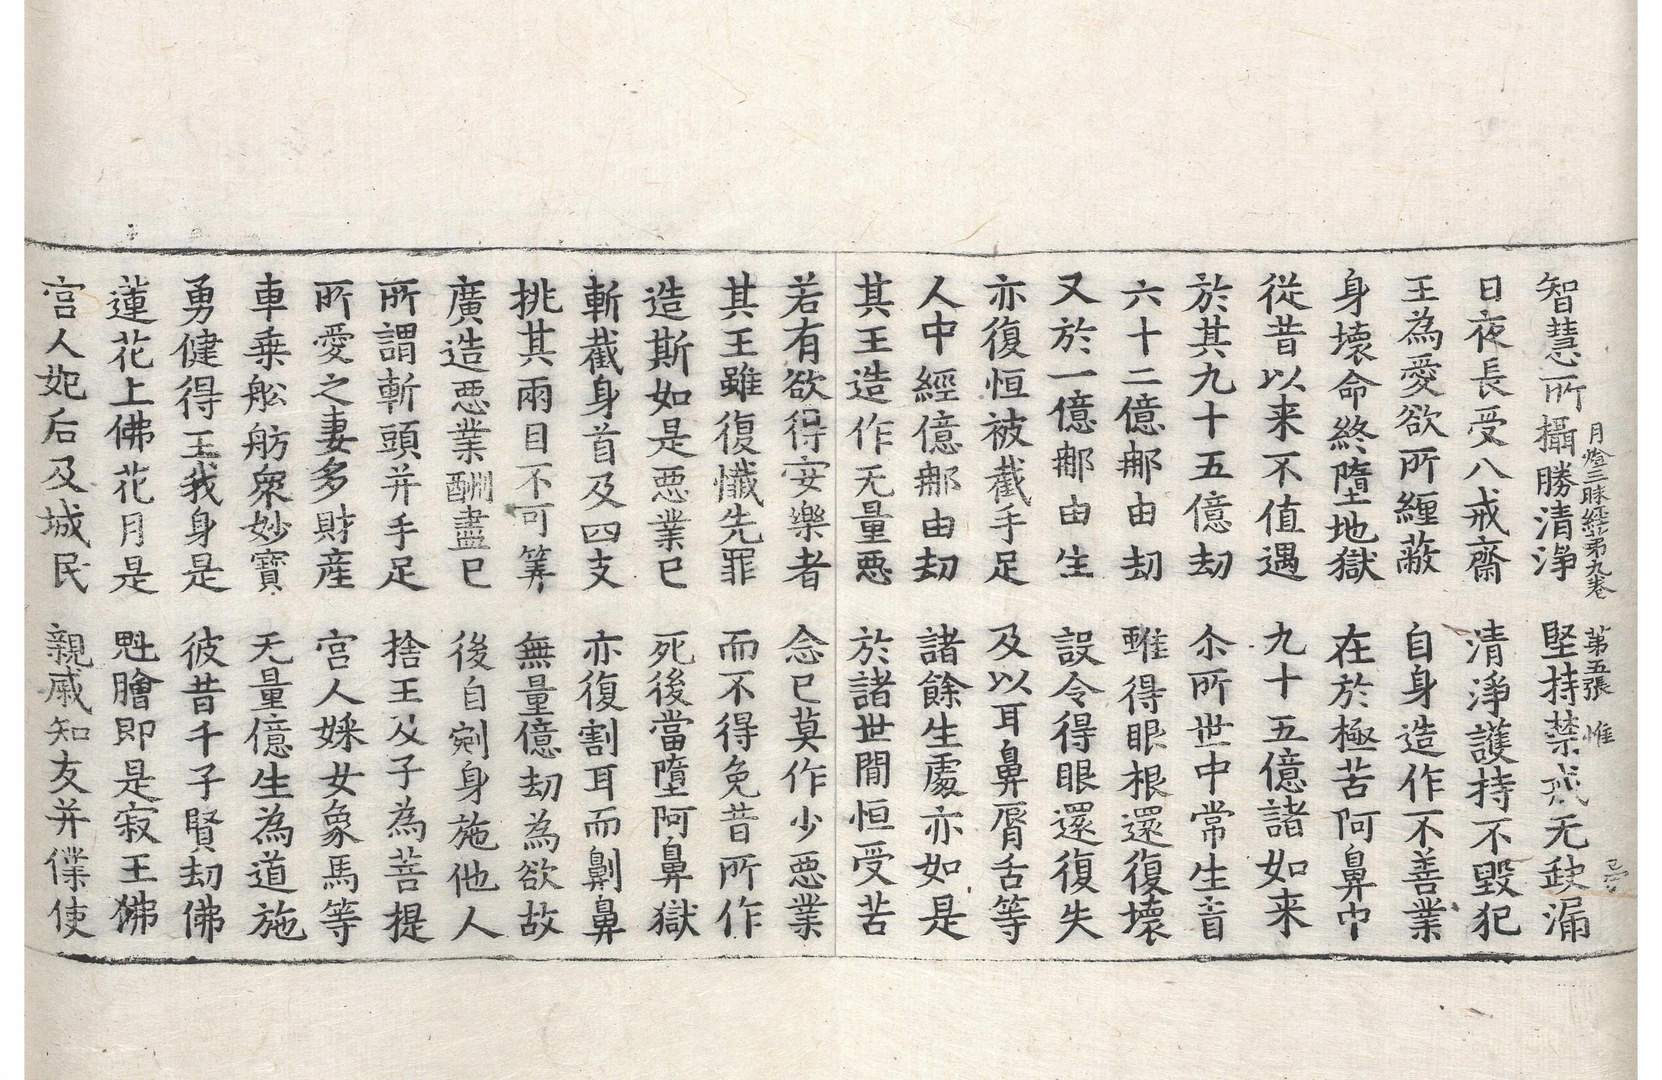 智慧所攝勝清淨　堅持禁戒无缺漏
月燈三昧經第九卷　第五張　惟
日夜長受八戒齋　清淨護持不毀犯
王為愛欲所纏蔽　自身造作不善業
身壞命終墮地獄　在於極苦阿鼻中
從昔以来不值遇　九十五億諸如来
於其九十五億劫　尒所世中常生盲
六十二億郍由劫　雖得眼根還復壞
又於一億郍由生　設令得眼還復失
亦復恒被截手足　及以耳鼻脣舌等
人中經億郍由劫　諸餘生處亦如是
其王造作无量惡　於諸世間恒受苦
若有欲得安樂者　念已莫作少惡業
其王雖復懺先罪　而不得免昔所作
造斯如是惡業已　死後當墮阿鼻獄
斬截身首及四支　亦復割耳而劓鼻
挑其兩目不可筭　無量億劫為欲故
廣造惡業酬盡已　後自剜身施他人
所謂斬頭并手足　捨王及子為菩提
所愛之妻多財產　宮人婇女象馬等
車乗舩舫衆妙寶　无量億生為道施
勇健得王我身是　彼昔千子賢劫佛
蓮花上佛花月是　魁膾即是寂王佛
宮人妃后及城民　親戚知友并僕使